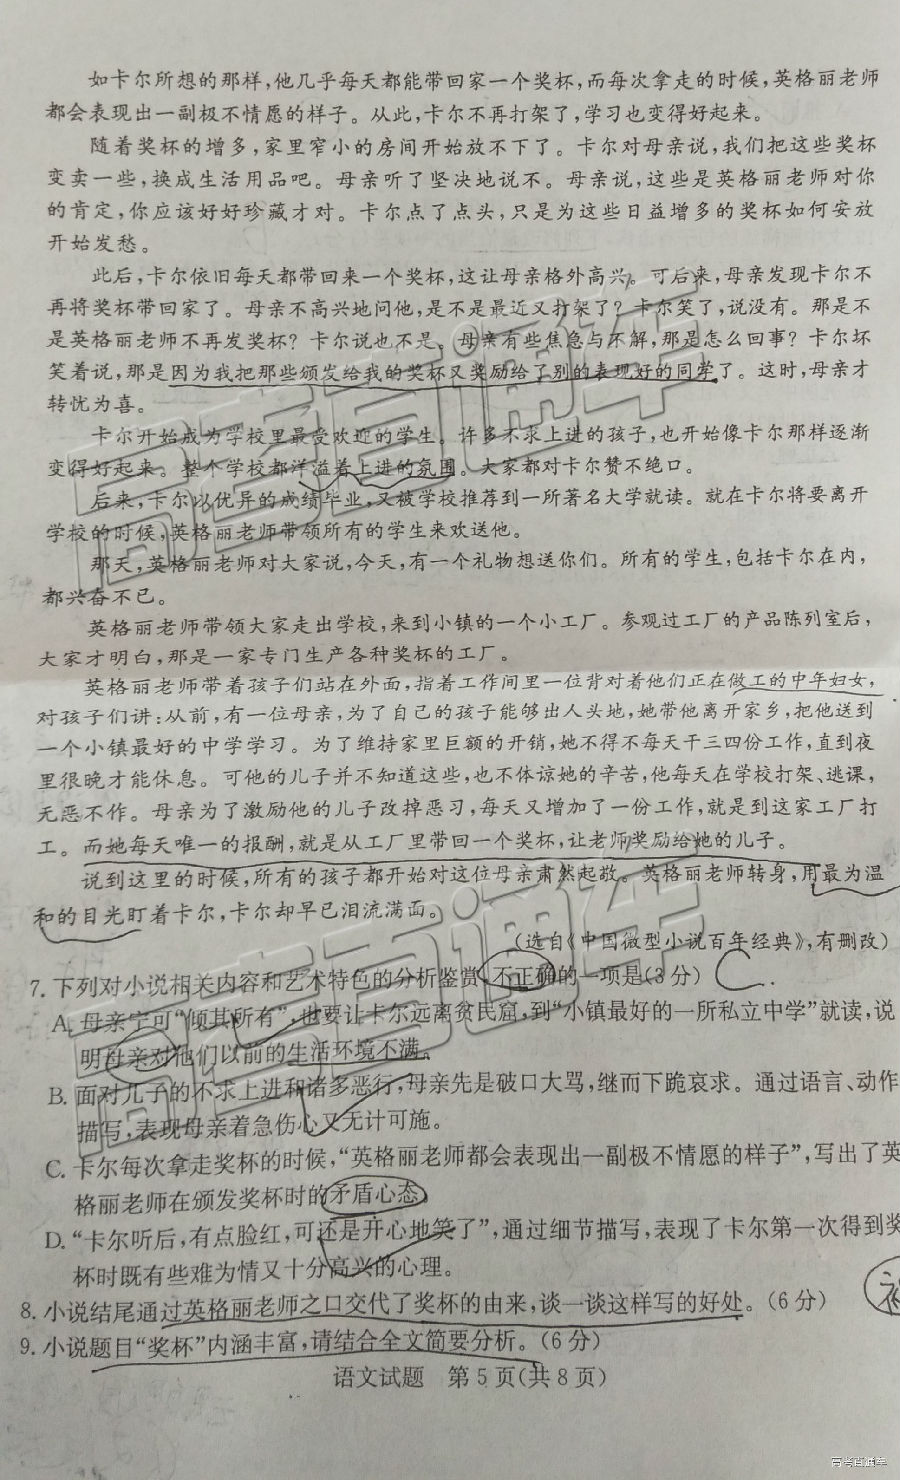 如卡尔所想的那样,他几乎每天都能带回家一个奖杯,而每次拿走的时候,英格丽老师
都会表现出一副极不情愿的样子。从此,卡尔不再打架了,学习也变得好起来。
随着奖杯的增多,家里窄小的房间开始放不下了。卡尔对母亲说,我们把这些奖杯
变卖一些,换成生活用品吧。母亲听了坚决地说不。母亲说,这些是英格丽老师对你
的肯定,你应该好好珍藏才对。卡尔点了点头,只是为这些日益增多的奖杯如何安放
开始发愁。
此后,卡尔依旧每天都带回来一个奖杯,这让母亲格外高兴。可后来,母亲发现卡尔不
再将奖杯带回家了。母亲不高兴地问他,是不是最近又打架了?卡尔笑了,说没有。那是不
是英格丽老师不再发奖杯?卡尔说也不是。母亲有些焦急与不解,那是怎么回事?卡尔坏
笑着说,那是因为我把那些颁发给我的奖杯又奖励给了别的表现好的同学了。这时,母亲才
转忧为喜。
卡尔开始成为学校里最受欢迎的学生。许多不求上进的孩子,也开始像卡尔那样逐渐
变得好起来。整个学校都洋溢着上进的氛围。大家都对卡尔赞不绝口。
后来,卡尔以优异的成绩毕业,又被学校推荐到一所著名大学就读。就在卡尔将要离开
学校的时候,英格丽老师带领所有的学生来欢送他。
那天,英格丽老师对大家说,今天,有一个礼物想送你们。所有的学生,包括卡尔在内,
都兴奋不已。
英格丽老师带领大家走出学校,来到小镇的一个小工厂。参观过工厂的产品陈列室后,
大家才明白,那是一家专门生产各种奖杯的工厂。
英格丽老师带着孩子们站在外面,指着工作间里一位背对着他们正在做工的中年妇女,
对孩子们讲:从前,有一位母亲,为了自己的孩子能够出人头地,她带他离开家乡,把他送到
一个小镇最好的中学学习。为了维持家里巨额的开销,她不得不每天干三四份工作,直到夜
里很晚才能休息。可他的儿子并不知道这些,也不体谅她的辛苦,他每天在学校打架、逃课,
无恶不作。母亲为了激励他的儿子改掉恶习,每天又增加了一份工作,就是到这家工厂打
工。而她每天唯一的报酬,就是从工厂里带回一个奖杯,让老师奖励给她的儿子。
说到这里的时候,所有的孩子都开始对这位母亲肃然起敬。英格丽老师转身,用最为温
和的目光盯着卡尔,卡尔却早已泪流满面。
(选自《中国微型小说百年经典》,有删改)
7. 下列对小说相关内容和艺术特色的分析鉴赏,不正确的一项是(3分)
A. 母亲宁可“倾其所有”,也要让卡尔远离贫民窟,到“小镇最好的一所私立中学”就读,说
明母亲对他们以前的生活环境不满。
B. 面对儿子的不求上进和诸多恶行,母亲先是破口大骂,继而下跪哀求。通过语言、动作
描写,表现母亲着急伤心又无计可施。
C. 卡尔每次拿走奖杯的时候,“英格丽老师都会表现出一副极不情愿的样子”,写出了英
格丽老师在颁发奖杯时的矛盾心态。
D. “卡尔听后,有点脸红,可还是开心地笑了”,通过细节描写,表现了卡尔第一次得到奖
杯时既有些难为情又十分高兴的心理。
8. 小说结尾通过英格丽老师之口交代了奖杯的由来,谈一谈这样写的好处。(6分)
9. 小说题目“奖杯”内涵丰富,请结合全文简要分析。(6分)
语文试题 第5页(共8页)
高考直通车
高考直通车
高考直通车